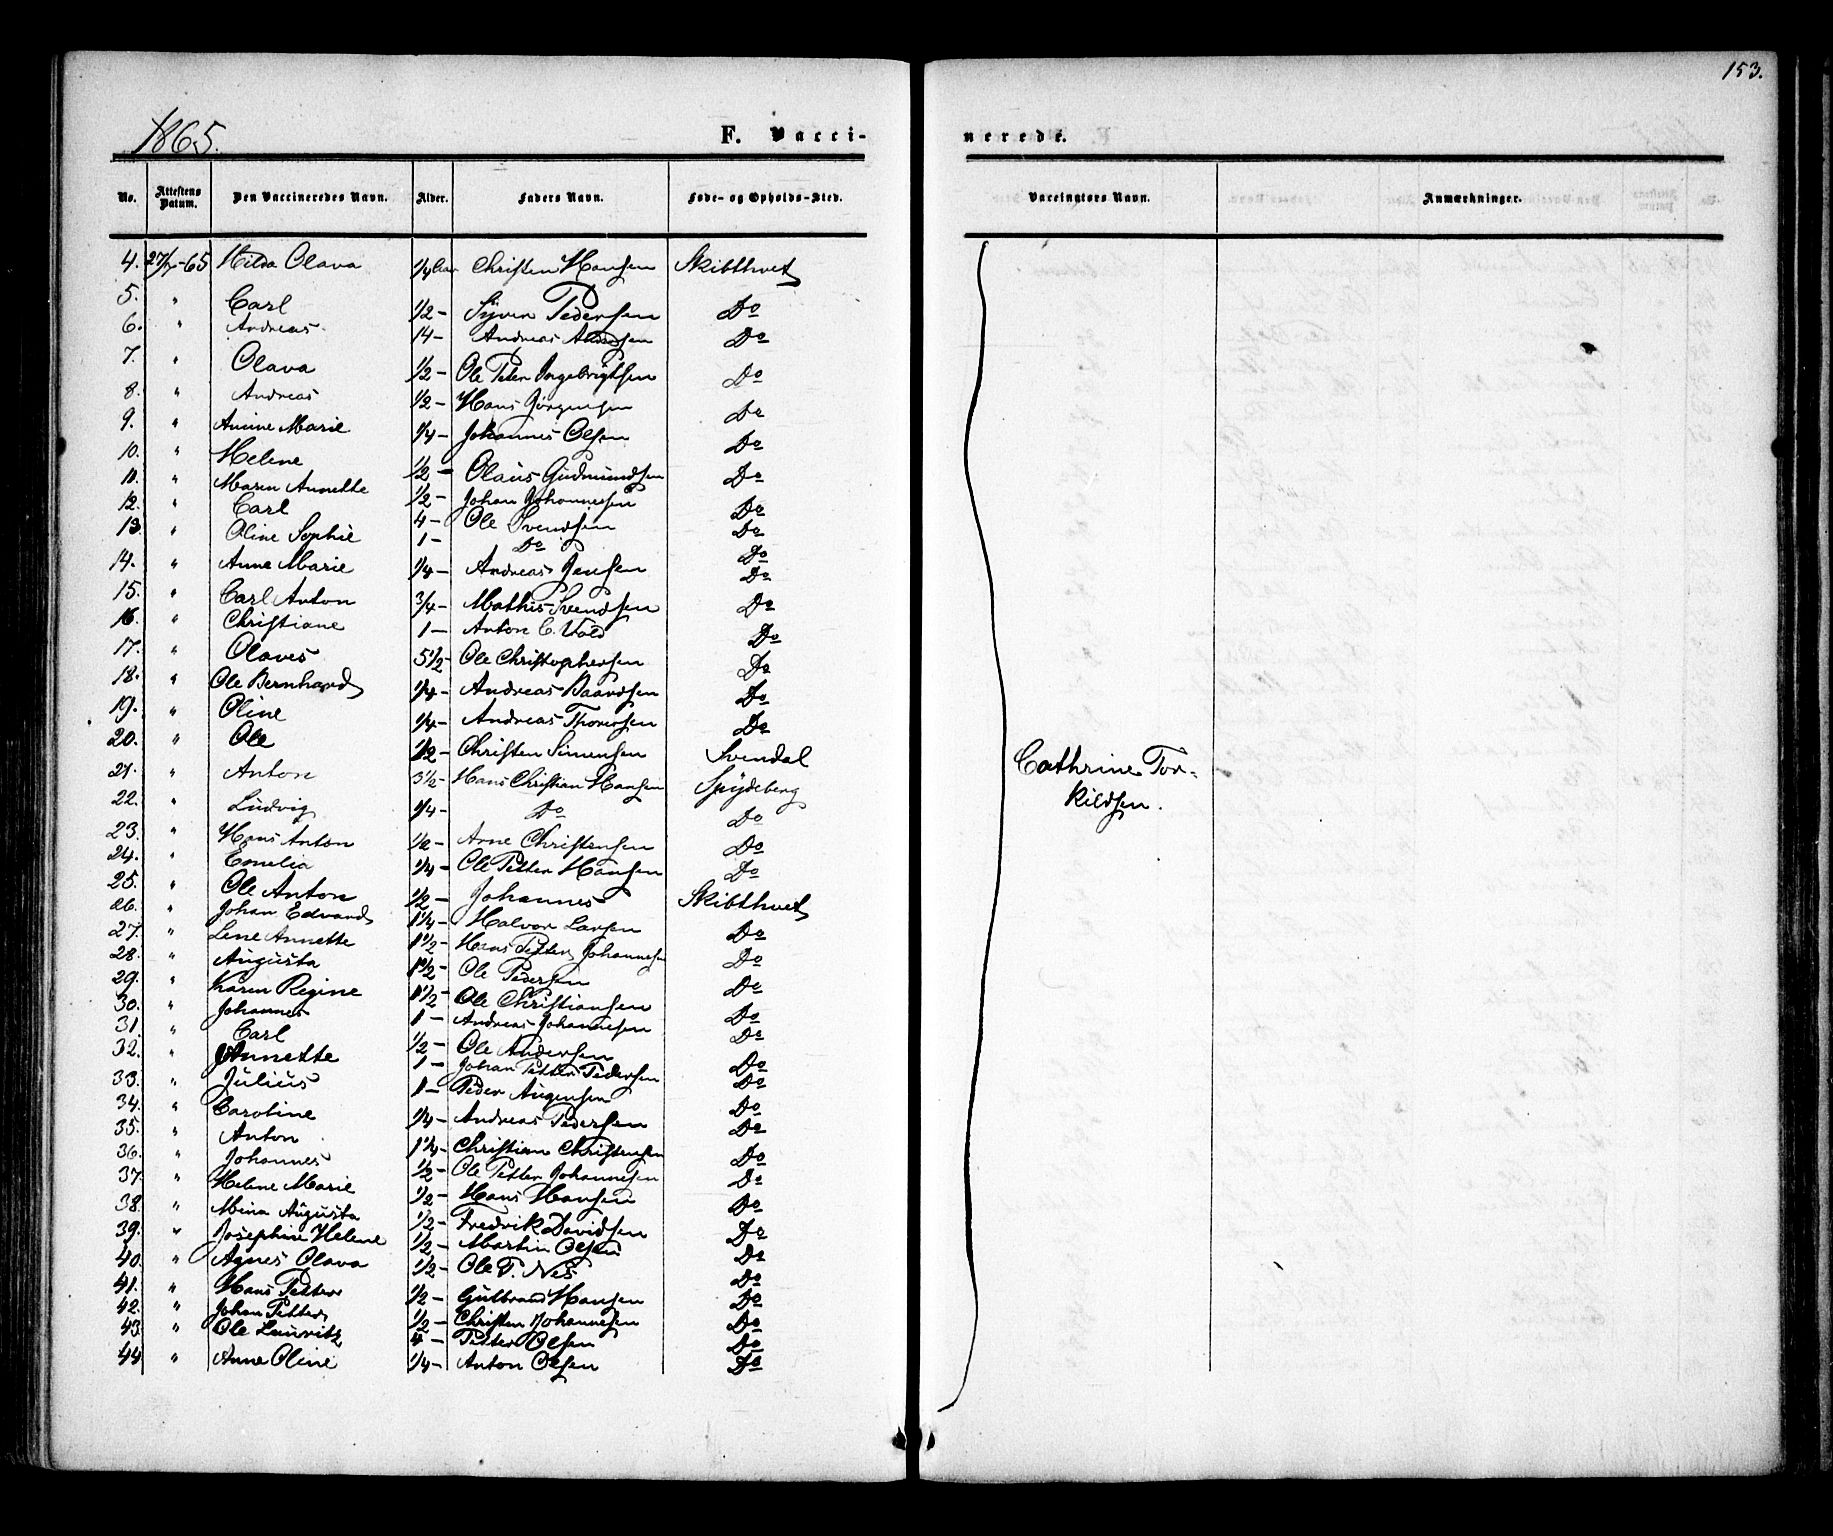 153.
1865.
F. Vacci-
nerede.
No. Attestens Datum. Den Vaccineredes Navn. Alder. Faders Navn. Føde- og Opholds-Sted. Vaccinators Navn. Anmærkninger.
4. 27/7-65 Hilda Olava 1/4 Aar Christen Hansen Skibthvet
5. " Carl 1/2 - Syver Pedersen Do
6. " Andreas 14 - Andreas Do
7. " Olava 1/2 - Ole Peter Ingebrigtsen Do
8. " Andreas 1/2 - Hans Jørgensen Do
9. " Anine Marie 1/4 - Johannes Olsen Do
10. " Helene 1/2 - Olaus Gudmundsen Do
11. " Maren Annette 1/2 - Johan Johannesen Do
12. " Carl 4 - Ole Svendsen Do
13. " Oline Sophie 1 - Do Do
14. " Anne Marie 1/4 - Andreas Jensen Do
15. " Carl Anton 3/4 - Mathis Svendsen Do
16. " Christiane 1 - Anton C. Vold Do
17. " Olaves 5 1/2 - Ole Christophersen Do
18. " Ole Bernhard 1/4 - Andreas Baardsen Do
19. " Oline 1/4 - Andreas Thoresen Do
20. " Ole 1/2 - Christen Simensen Svendal
21. " Anton 3 1/2 - Hans Christian Hansen Spydeberg
22. " Ludvig 1/4 - Do Do
23. " Hans Anton 1/2 - Arne Christensen Do
24. " Emelia 1/4 - Ole Petter Hansen Do
25. " Ole Anton 1/2 - Johannes Skibthvet
26. " Johan Edvard 1 1/4 - Halvor Larsen Do
27. " Lene Annette 1 1/2 - Hans Petter Johannesen Do
28. " Augusta 1/2 - Ole Pedersen Do
29. " Karen Regine 1 1/2 - Ole Christiansen Do
30. " Johannes 1 - Andreas Johannesen Do
31. " Carl 1/2 - Ole Andersen Do
32. " Annette 1 - Johan Petter Pedersen Do
33. " Julius 1 - Peder Do
34. " Caroline 1/4 - Andreas Pedersen Do
35. " Anton 1 1/4 - Christian Christensen Do
36. " Johannes 1/2 - Ole Petter Johannesen Do
37. " Helene Marie 1/2 - Hans Hansen Do
38. " Mina Augusta 1/2 - Fredrik Davidsen Do
39. " Josephine Helene 1/2 - Martin Olsen Do
40. " Agnes Olava 1/2 - Ole T. Nes Do
41. " Hans Petter 1/2 - Gulbrand Hansen Do
42. " Johan Petter 1/2 - Christen Johannesen Do
43 " Ole Lauritz 4 - Petter Olsen Do
44 " Anne Oline 1/4 - Anton Olsen Do
Cathrine Tor-
kildsen.